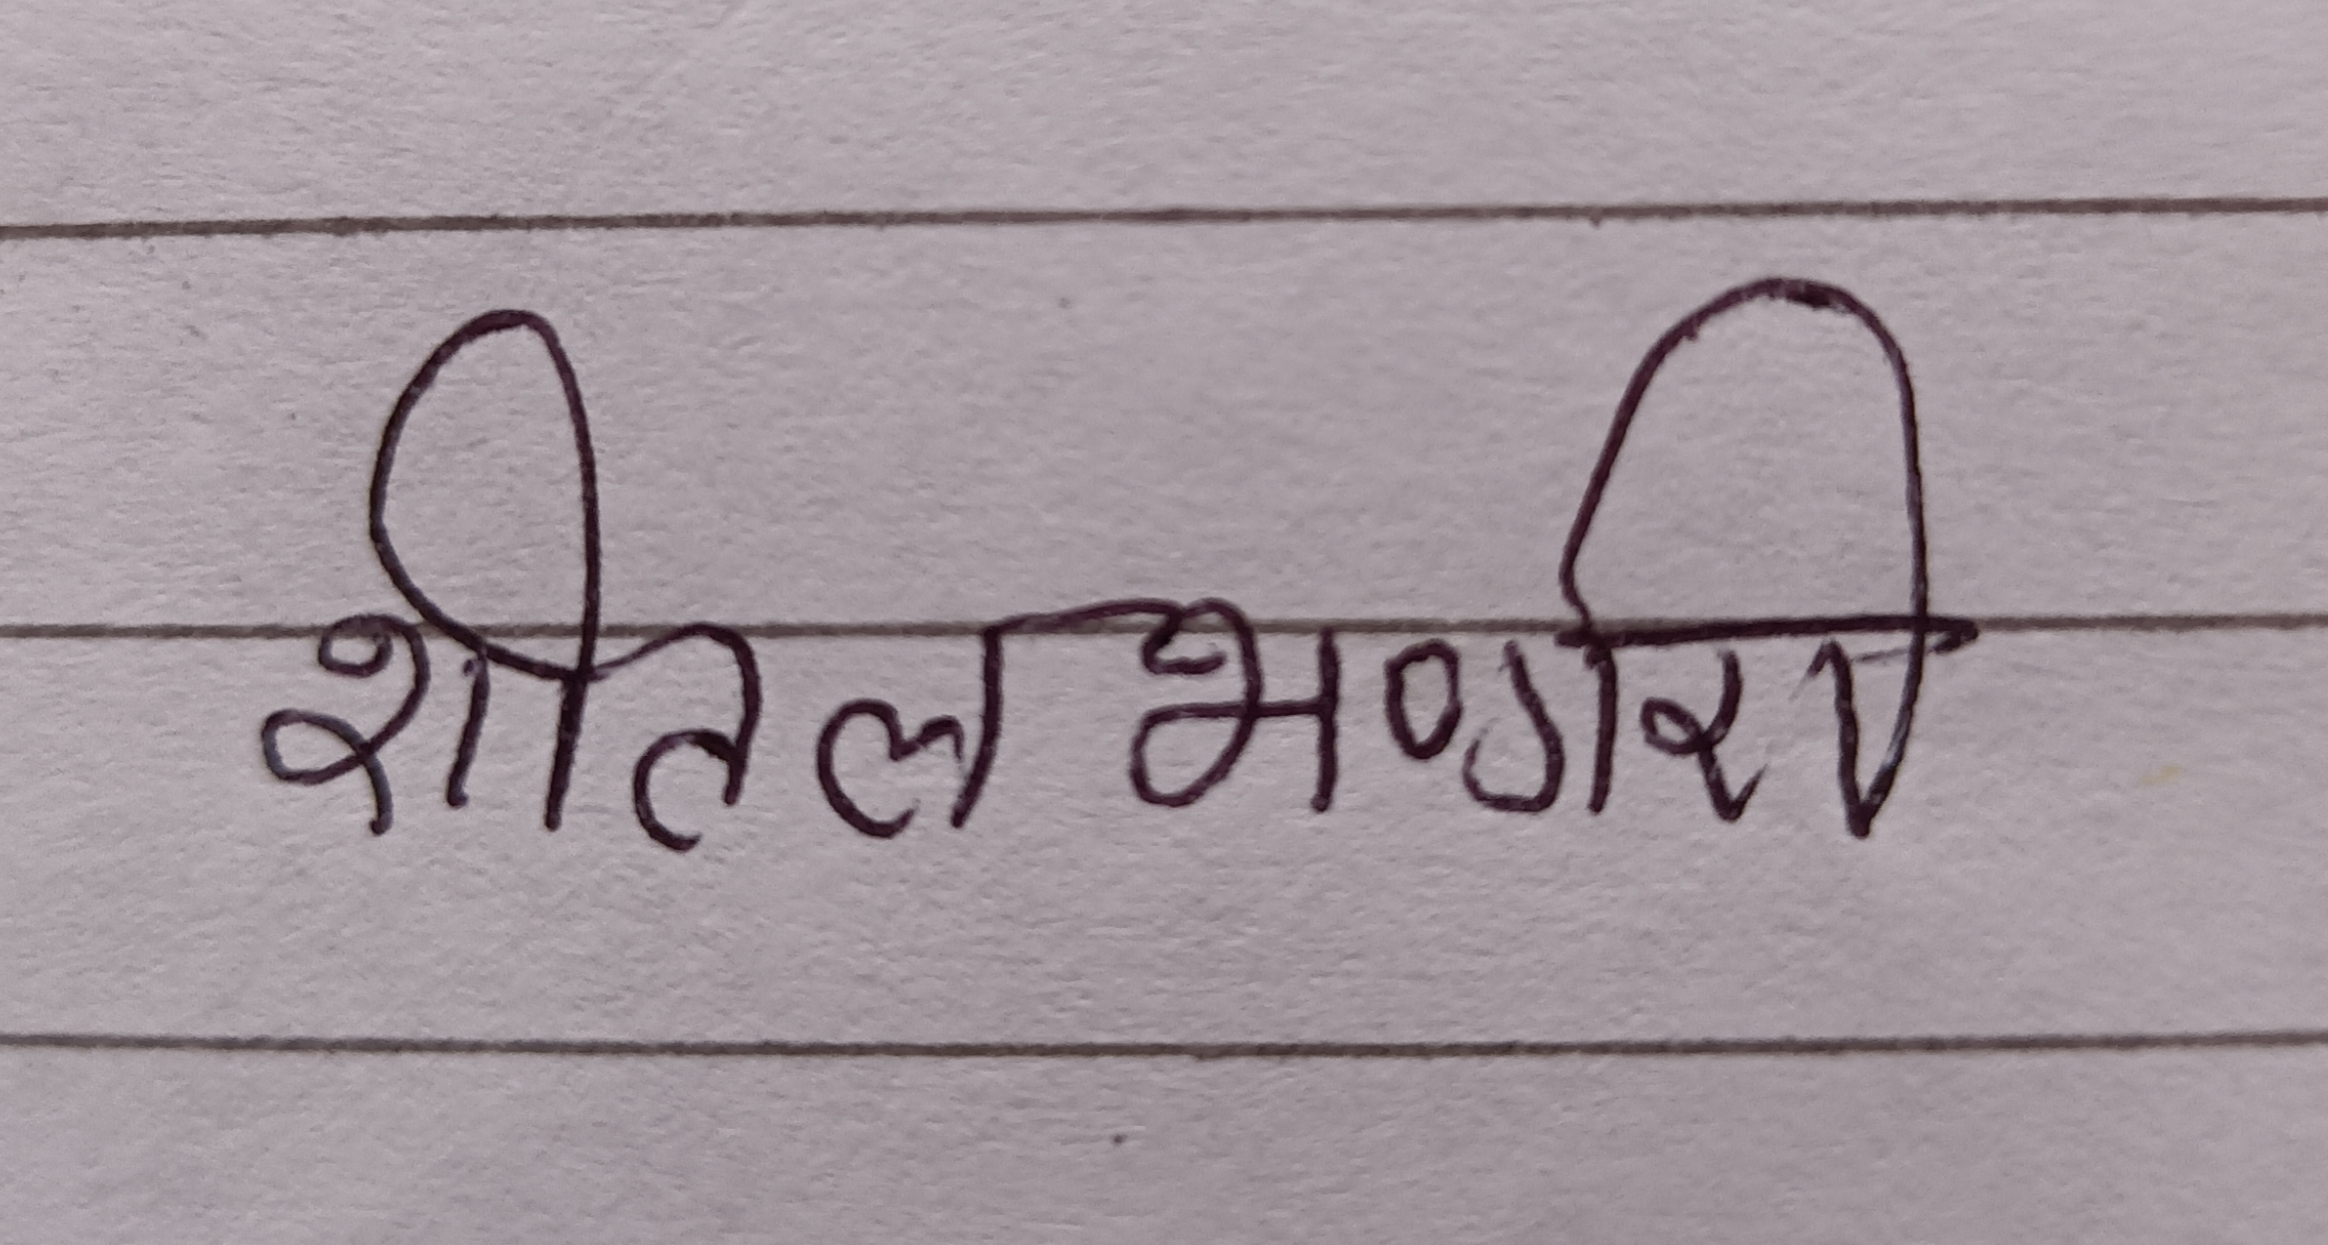 शीतल भण्डारी